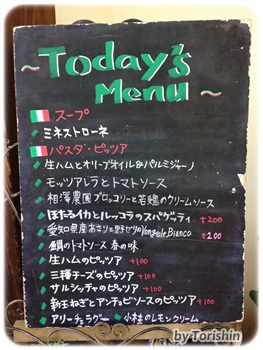 ~Today's
Menu~
スープ
ミネストローネ
パスタ・ピッツァ
生ハムとオリーブオイル&パルミジャーノ
モッツァレラとトマトソース
相澤農園ブロッコリーと若鶏のクリームソース
ほたるイカとルッコラのスパゲッティ +200
愛知県産あさりと野ゼリのVongole Bianco +200
鯛のトマトソース 春の味
生ハムのピッツァ +100
三種チーズのピッツァ +100
サルシッチャのピッツァ +100
新玉ねぎとアンチョビソースのピッツァ +100
アリーチェラグー 小柱のレモンクリーム
by Torishin